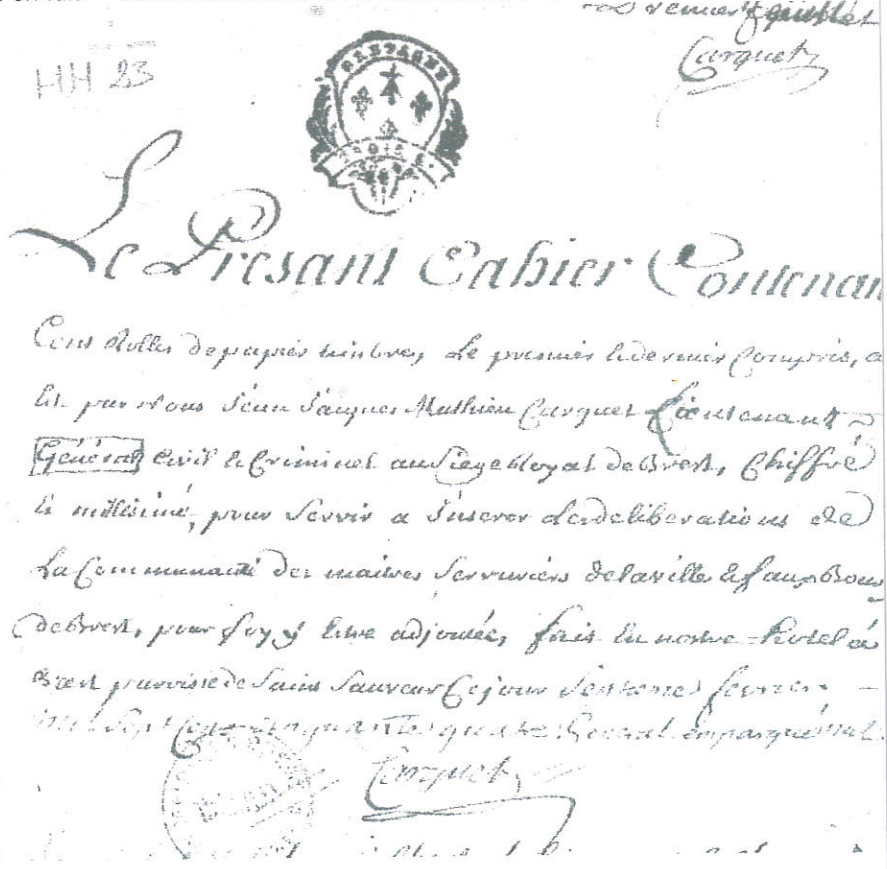 premier feuillet
Carquet
HH 23
BRETAGNE
Le Presant Cahier Contenan
Cent Rolles de papier timbré, Le premier & dernier Compris, a
Eté par Nous Jean Jacques Mathieu Carquet Lieutenant
Général Civil & Criminel au Siege Royal de Brest, Chiffré
& millésimé, pour Servir a Inserer Les deliberations de
La Communauté des maitres Serruriers de la ville & fauxbourg
de Brest, pour foy y Estre adjoutée, fait En nostre hotel a
Brest parroisse de Saint Sauveur Ce jour Septieme fevrier
mil Sept Cent Cinquante quatre
Carquet